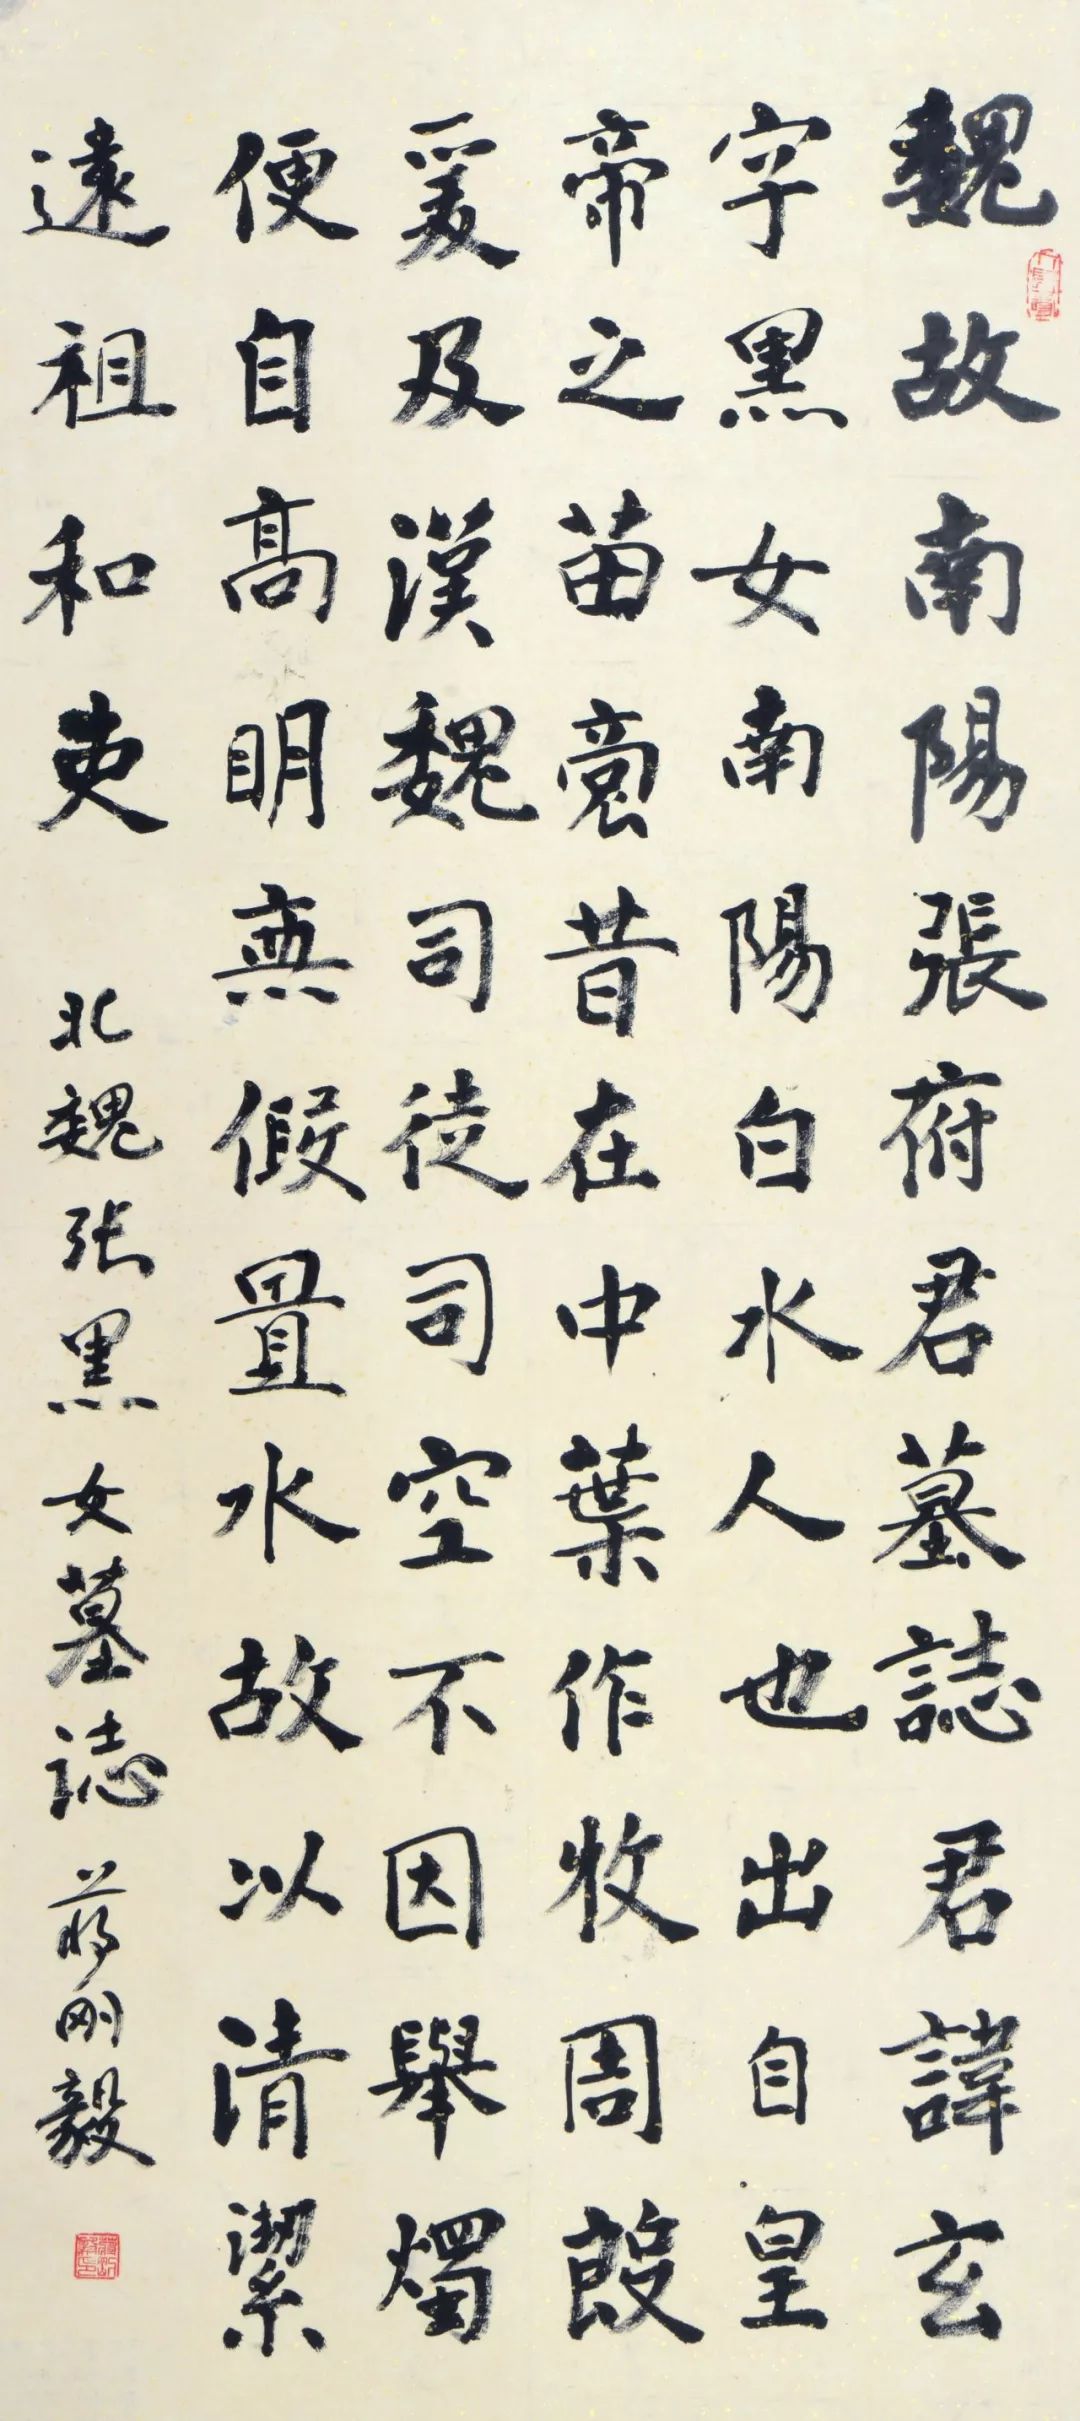 魏故南陽張府君墓誌君諱玄
字黑女南陽白水人也出自皇
帝之苗裔昔在中葉作牧周殷
爰及漢魏司徒司空不因舉燭
便自高明無假置水故以清潔
遠祖和吏
北魏张黑女墓誌 蒋刚毅